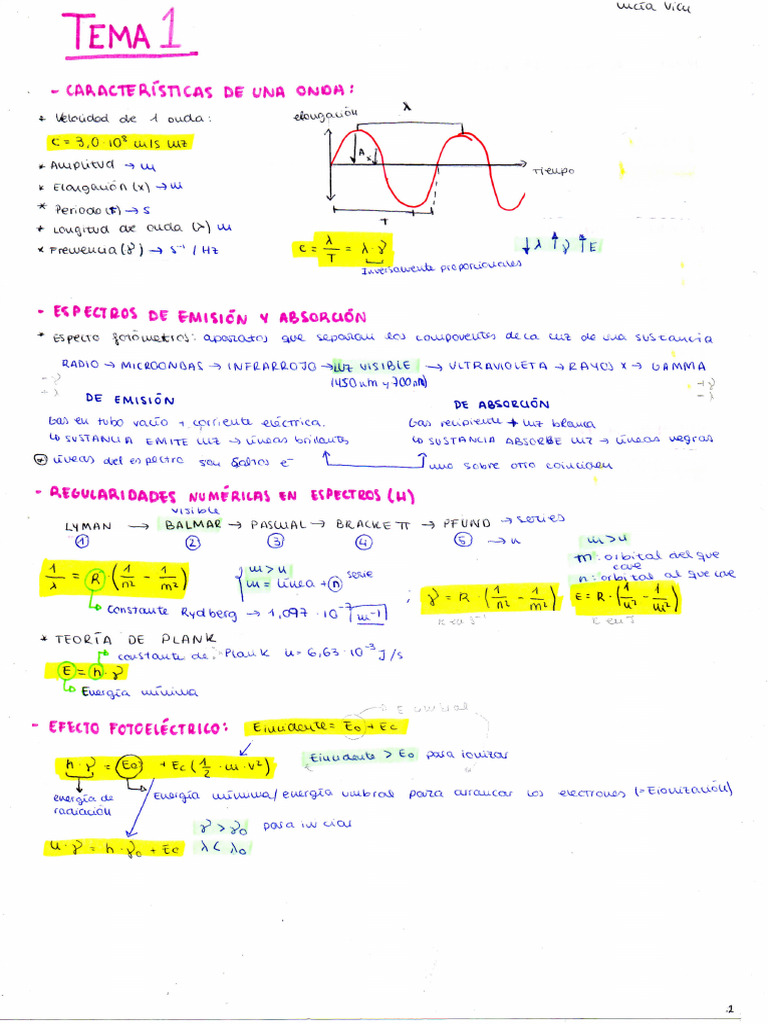 Lucía Vicu
TEMA 1
- CARACTERÍSTICAS DE UNA ONDA:
* Velocidad de 1 onda:
c = 3,0·10⁸ m/s luz
* Amplitud → m
* Elongación (x) → m
* Periodo (T) → s
* Longitud de onda (λ) m
* Frecuencia (γ) → s⁻¹ / Hz
elongación
λ
A
x
Tiempo
T
c = λ/T = λ·γ
Inversamente proporcionales
↓λ ↑γ ↑E
- ESPECTROS DE EMISIÓN Y ABSORCIÓN
* Especto fotómetros: aparatos que separan los componentes de la luz de una sustancia
RADIO → MICROONDAS → INFRARROJO → LUZ VISIBLE → ULTRAVIOLETA → RAYOS X → GAMMA
(450nm y 700nm)
- γ
+ λ
+ γ
- λ
DE EMISIÓN
Gas en tubo vacío + corriente eléctrica.
↳ SUSTANCIA EMITE LUZ → líneas brillantes
* líneas del espectro son saltos e⁻
DE ABSORCIÓN
Gas recipiente + luz blanca
↳ SUSTANCIA ABSORBE LUZ → líneas negras
uno sobre otro coinciden
- REGULARIDADES NUMÉRICAS EN ESPECTROS (H)
visible
LYMAN → BALMAR → PASCUAL → BRACKETT → PFUND → series
1 2 3 4 5 → n
1/λ = R · (1/n² - 1/m²)
m > n
m = línea + n serie
↳ constante Rydberg → 1,097 · 10⁻⁷ m⁻¹
;
γ = R · (1/n² - 1/m²)
R en s⁻¹
m > n
m: orbital del que cae
n: orbital al que cae
E = R · (1/n² - 1/m²)
R en J
* TEORÍA DE PLANK
constante de Plank h = 6,63·10⁻³ J/s
E = h·γ
↳ Energía mínima
- EFECTO FOTOELÉCTRICO: Eincidente = E₀ + Ec
→ E umbral
h·γ = E₀ + Ec (1/2 · m · v²)
Eincidente > E₀ para ionizar
energía de radiación
Energía mínima/energía umbral para arrancar los electrones (=Eionización)
γ > γ₀ para iniciar
λ < λ₀
h·γ = h·γ₀ + Ec
2